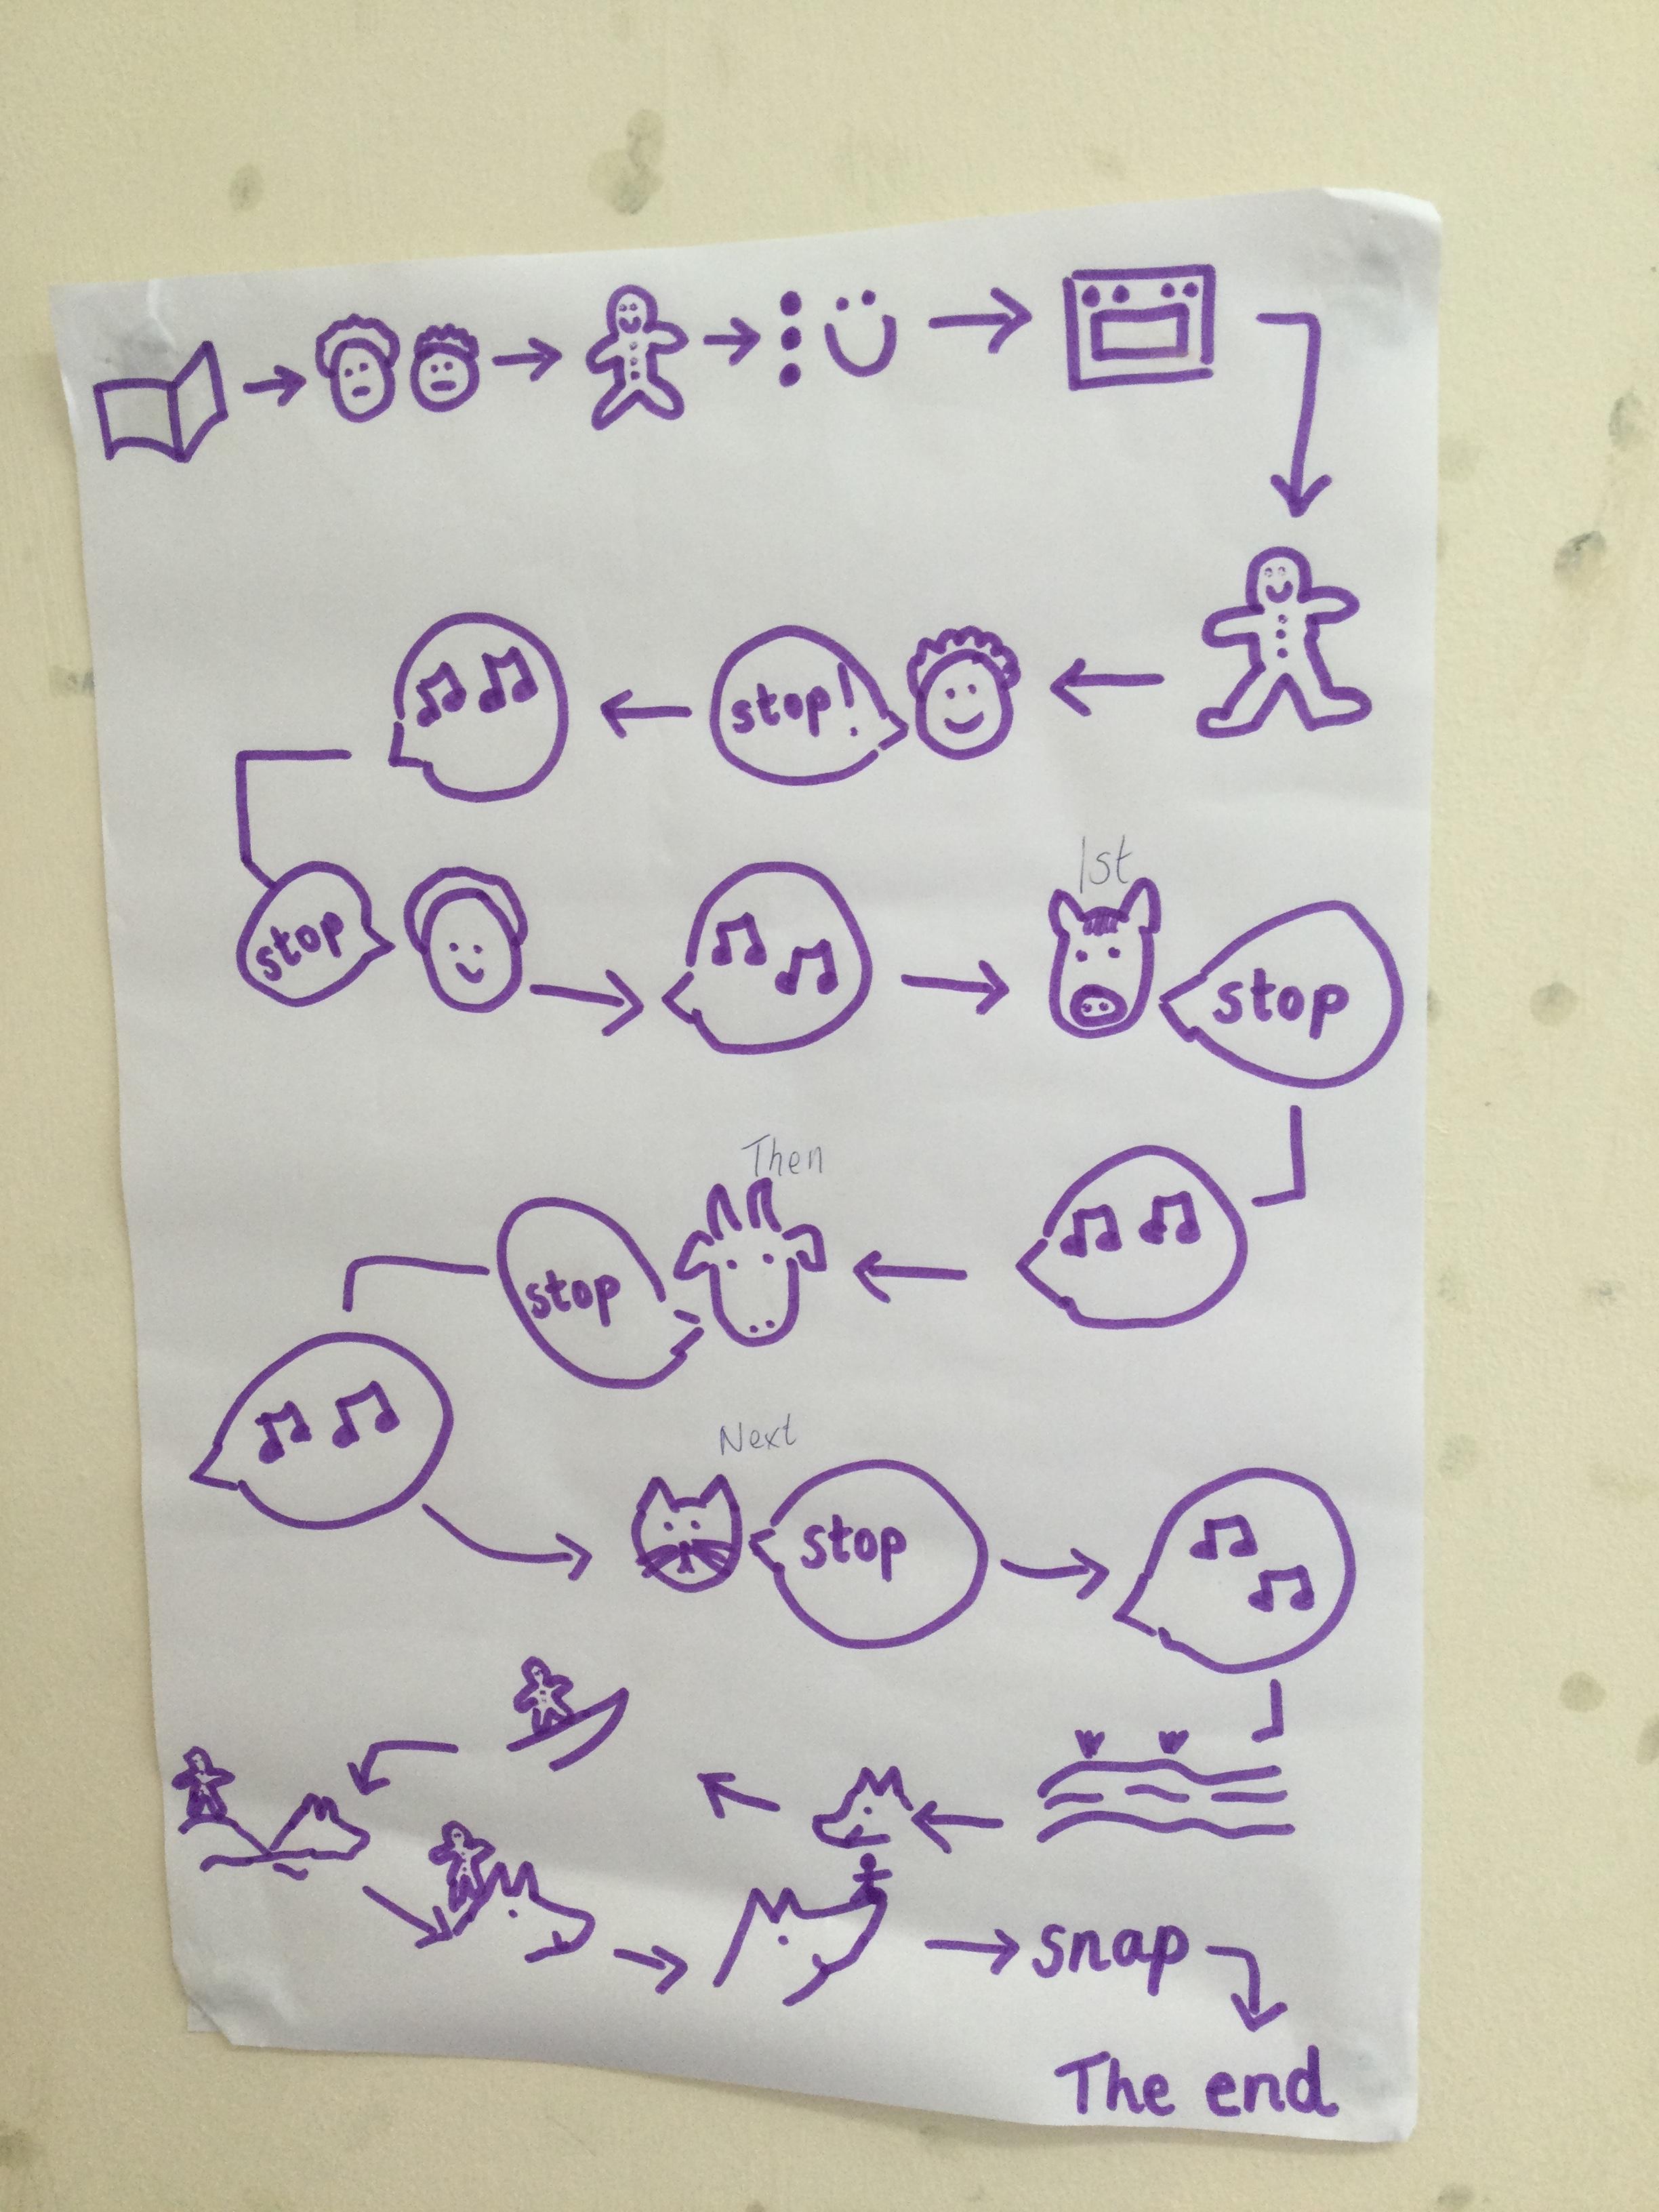 stop!
stop
1st
stop
Then
stop
Next
stop
snap
The end